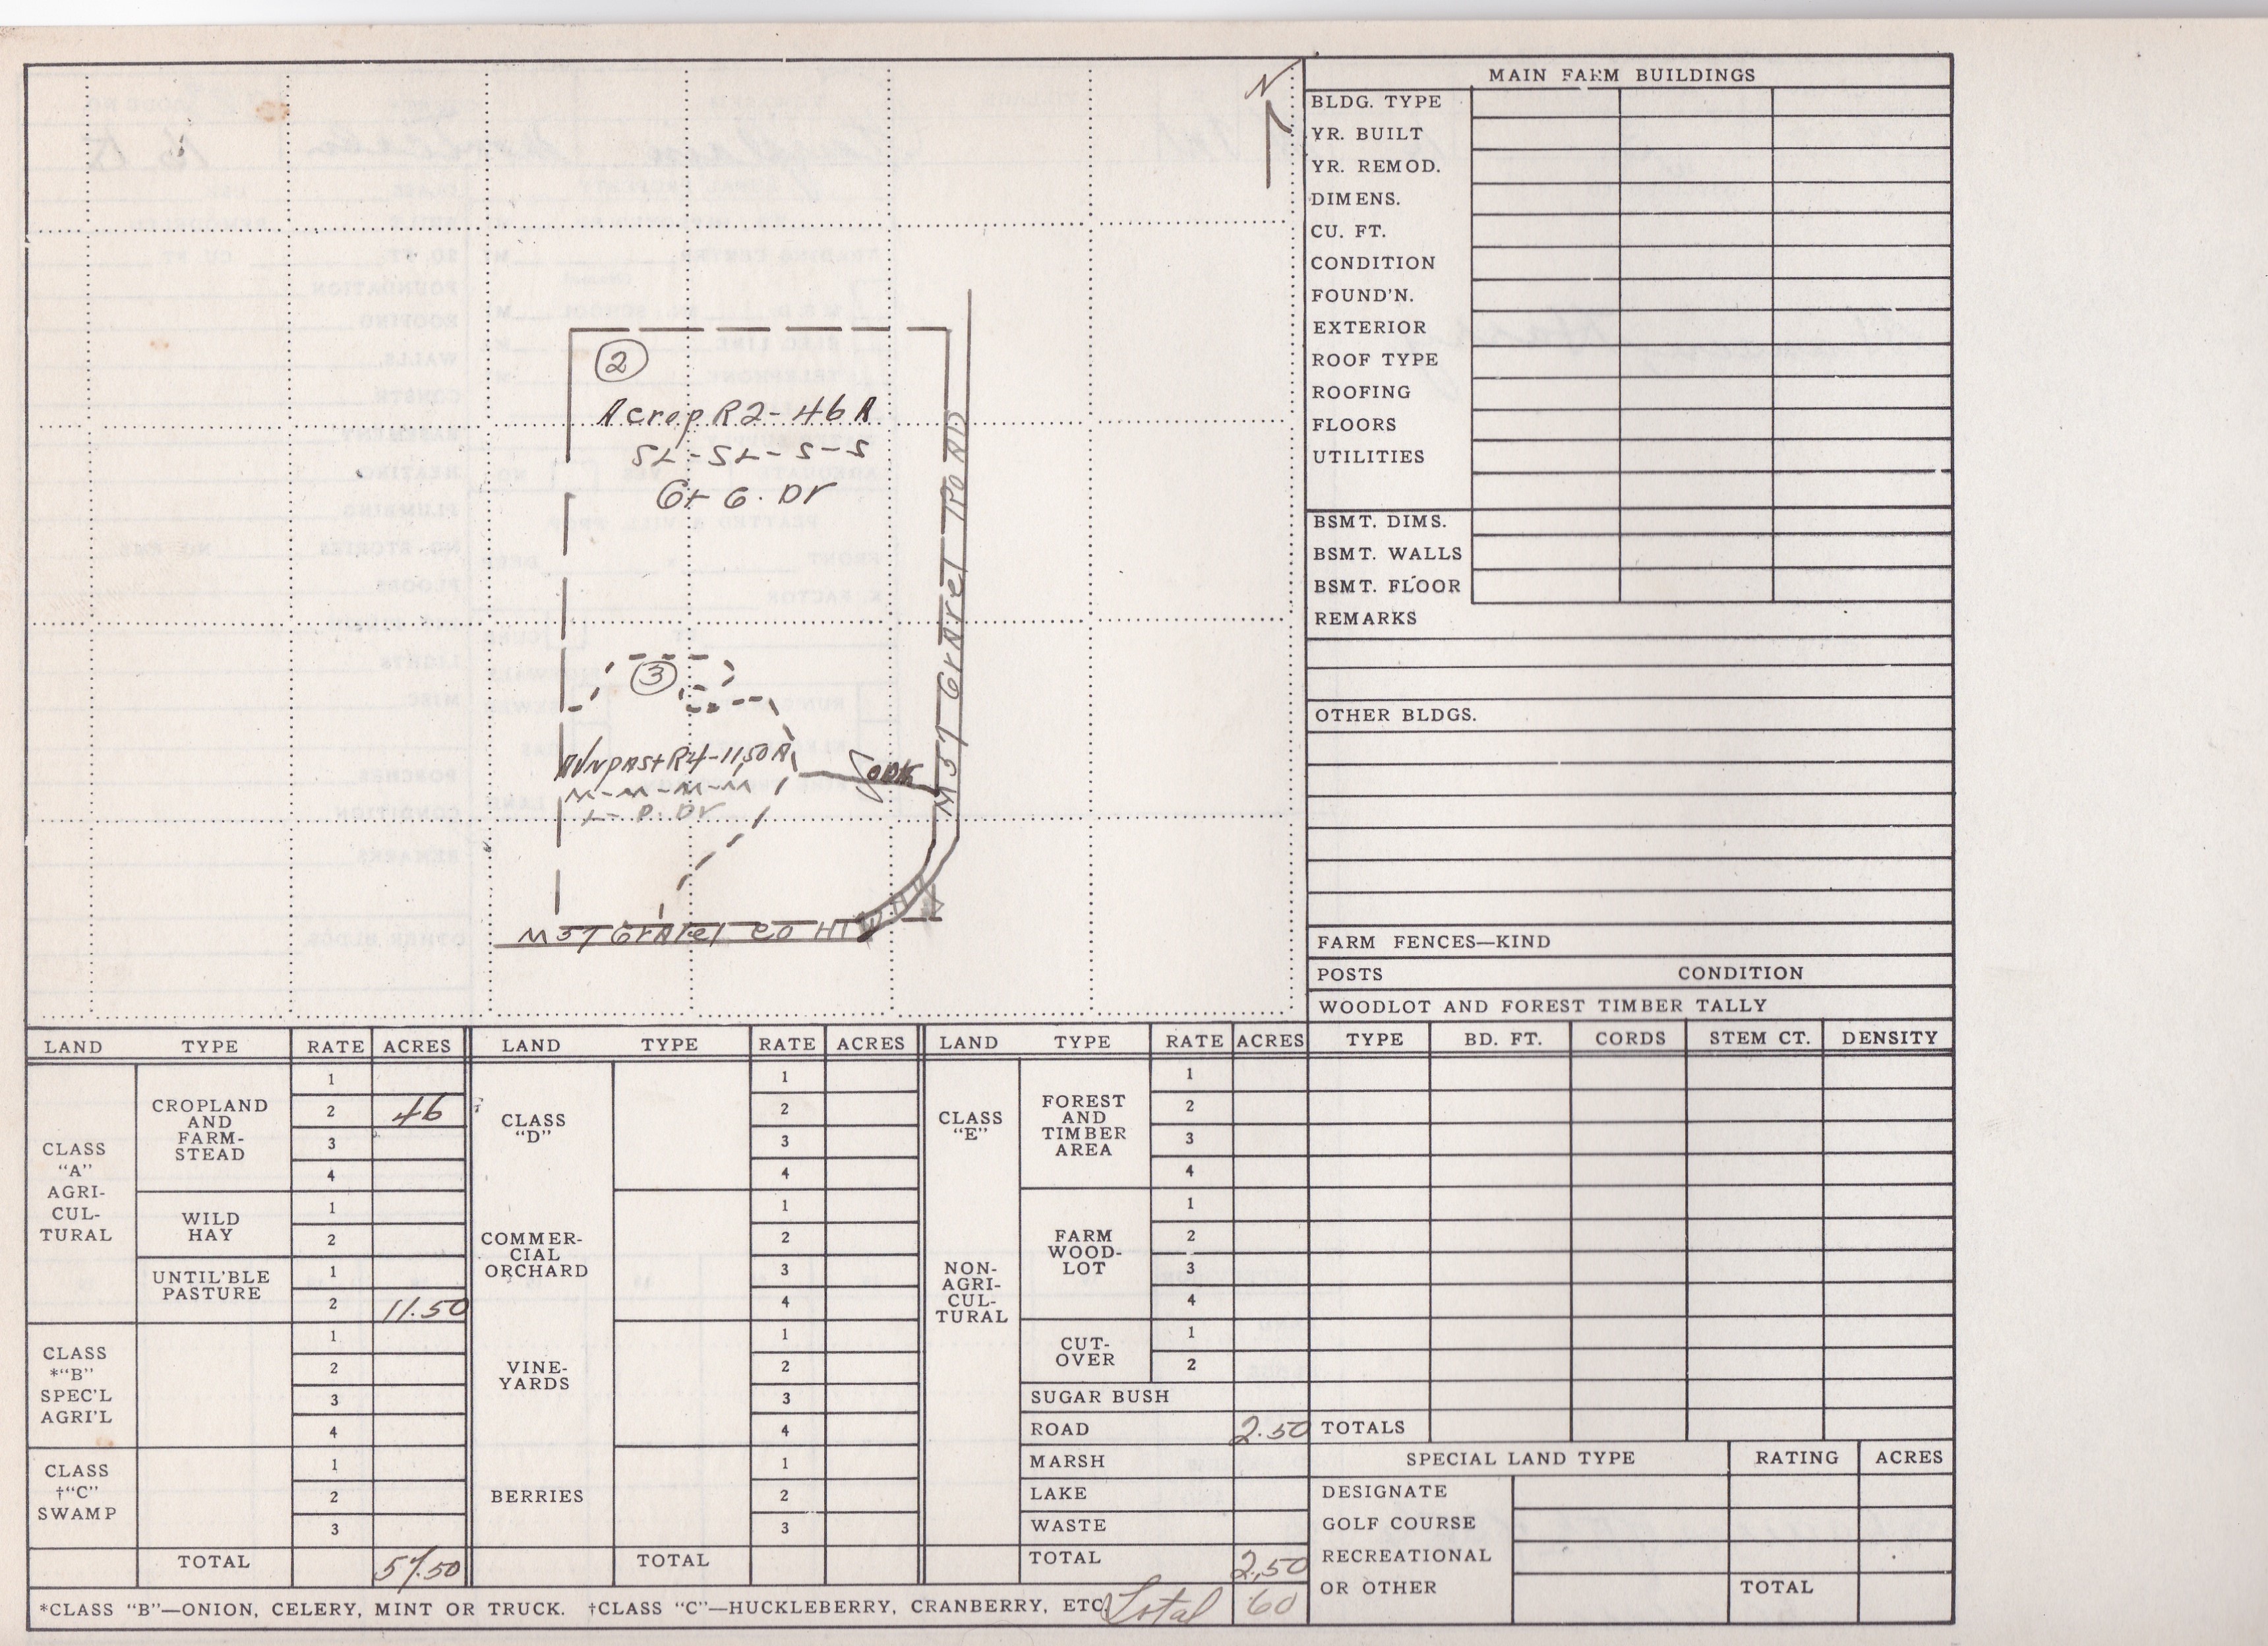 N
②
A crop R2-46A
SL-SL-S-S
Gr G. Dr
③
A Unpast R4-11.50A
M-M-M-M
L- P. Dr
M 37 Gravel ROAD
M 37 Gravel CO
MAIN FARM BUILDINGS
BLDG. TYPE
YR. BUILT
YR. REMOD.
DIMENS.
CU. FT.
CONDITION
FOUND'N.
EXTERIOR
ROOF TYPE
ROOFING
FLOORS
UTILITIES
BSMT. DIMS.
BSMT. WALLS
BSMT. FLOOR
REMARKS
OTHER BLDGS.
FARM FENCES—KIND
POSTS CONDITION
WOODLOT AND FOREST TIMBER TALLY
TYPE BD. FT. CORDS STEM CT. DENSITY
TOTALS
SPECIAL LAND TYPE RATING ACRES
DESIGNATE
GOLF COURSE
RECREATIONAL
OR OTHER TOTAL
LAND TYPE RATE ACRES
CLASS
"A"
AGRI-
CUL-
TURAL
CROPLAND
AND
FARM-
STEAD
1
2 46
3
4
WILD
HAY
1
2
UNTIL'BLE
PASTURE
1
2 11.50
CLASS
*"B"
SPEC'L
AGRI'L
1
2
3
4
CLASS
†"C"
SWAMP
1
2
3
TOTAL 57.50
LAND TYPE RATE ACRES
CLASS
"D"
1
2
3
4
COMMER-
CIAL
ORCHARD
1
2
3
4
VINE-
YARDS
1
2
3
4
BERRIES
1
2
3
TOTAL
LAND TYPE RATE ACRES
CLASS
"E"
NON-
AGRI-
CUL-
TURAL
FOREST
AND
TIMBER
AREA
1
2
3
4
FARM
WOOD-
LOT
1
2
3
4
CUT-
OVER
1
2
SUGAR BUSH
ROAD 2.50
MARSH
LAKE
WASTE
TOTAL 2.50
*CLASS "B"—ONION, CELERY, MINT OR TRUCK. †CLASS "C"—HUCKLEBERRY, CRANBERRY, ETC. Total 60